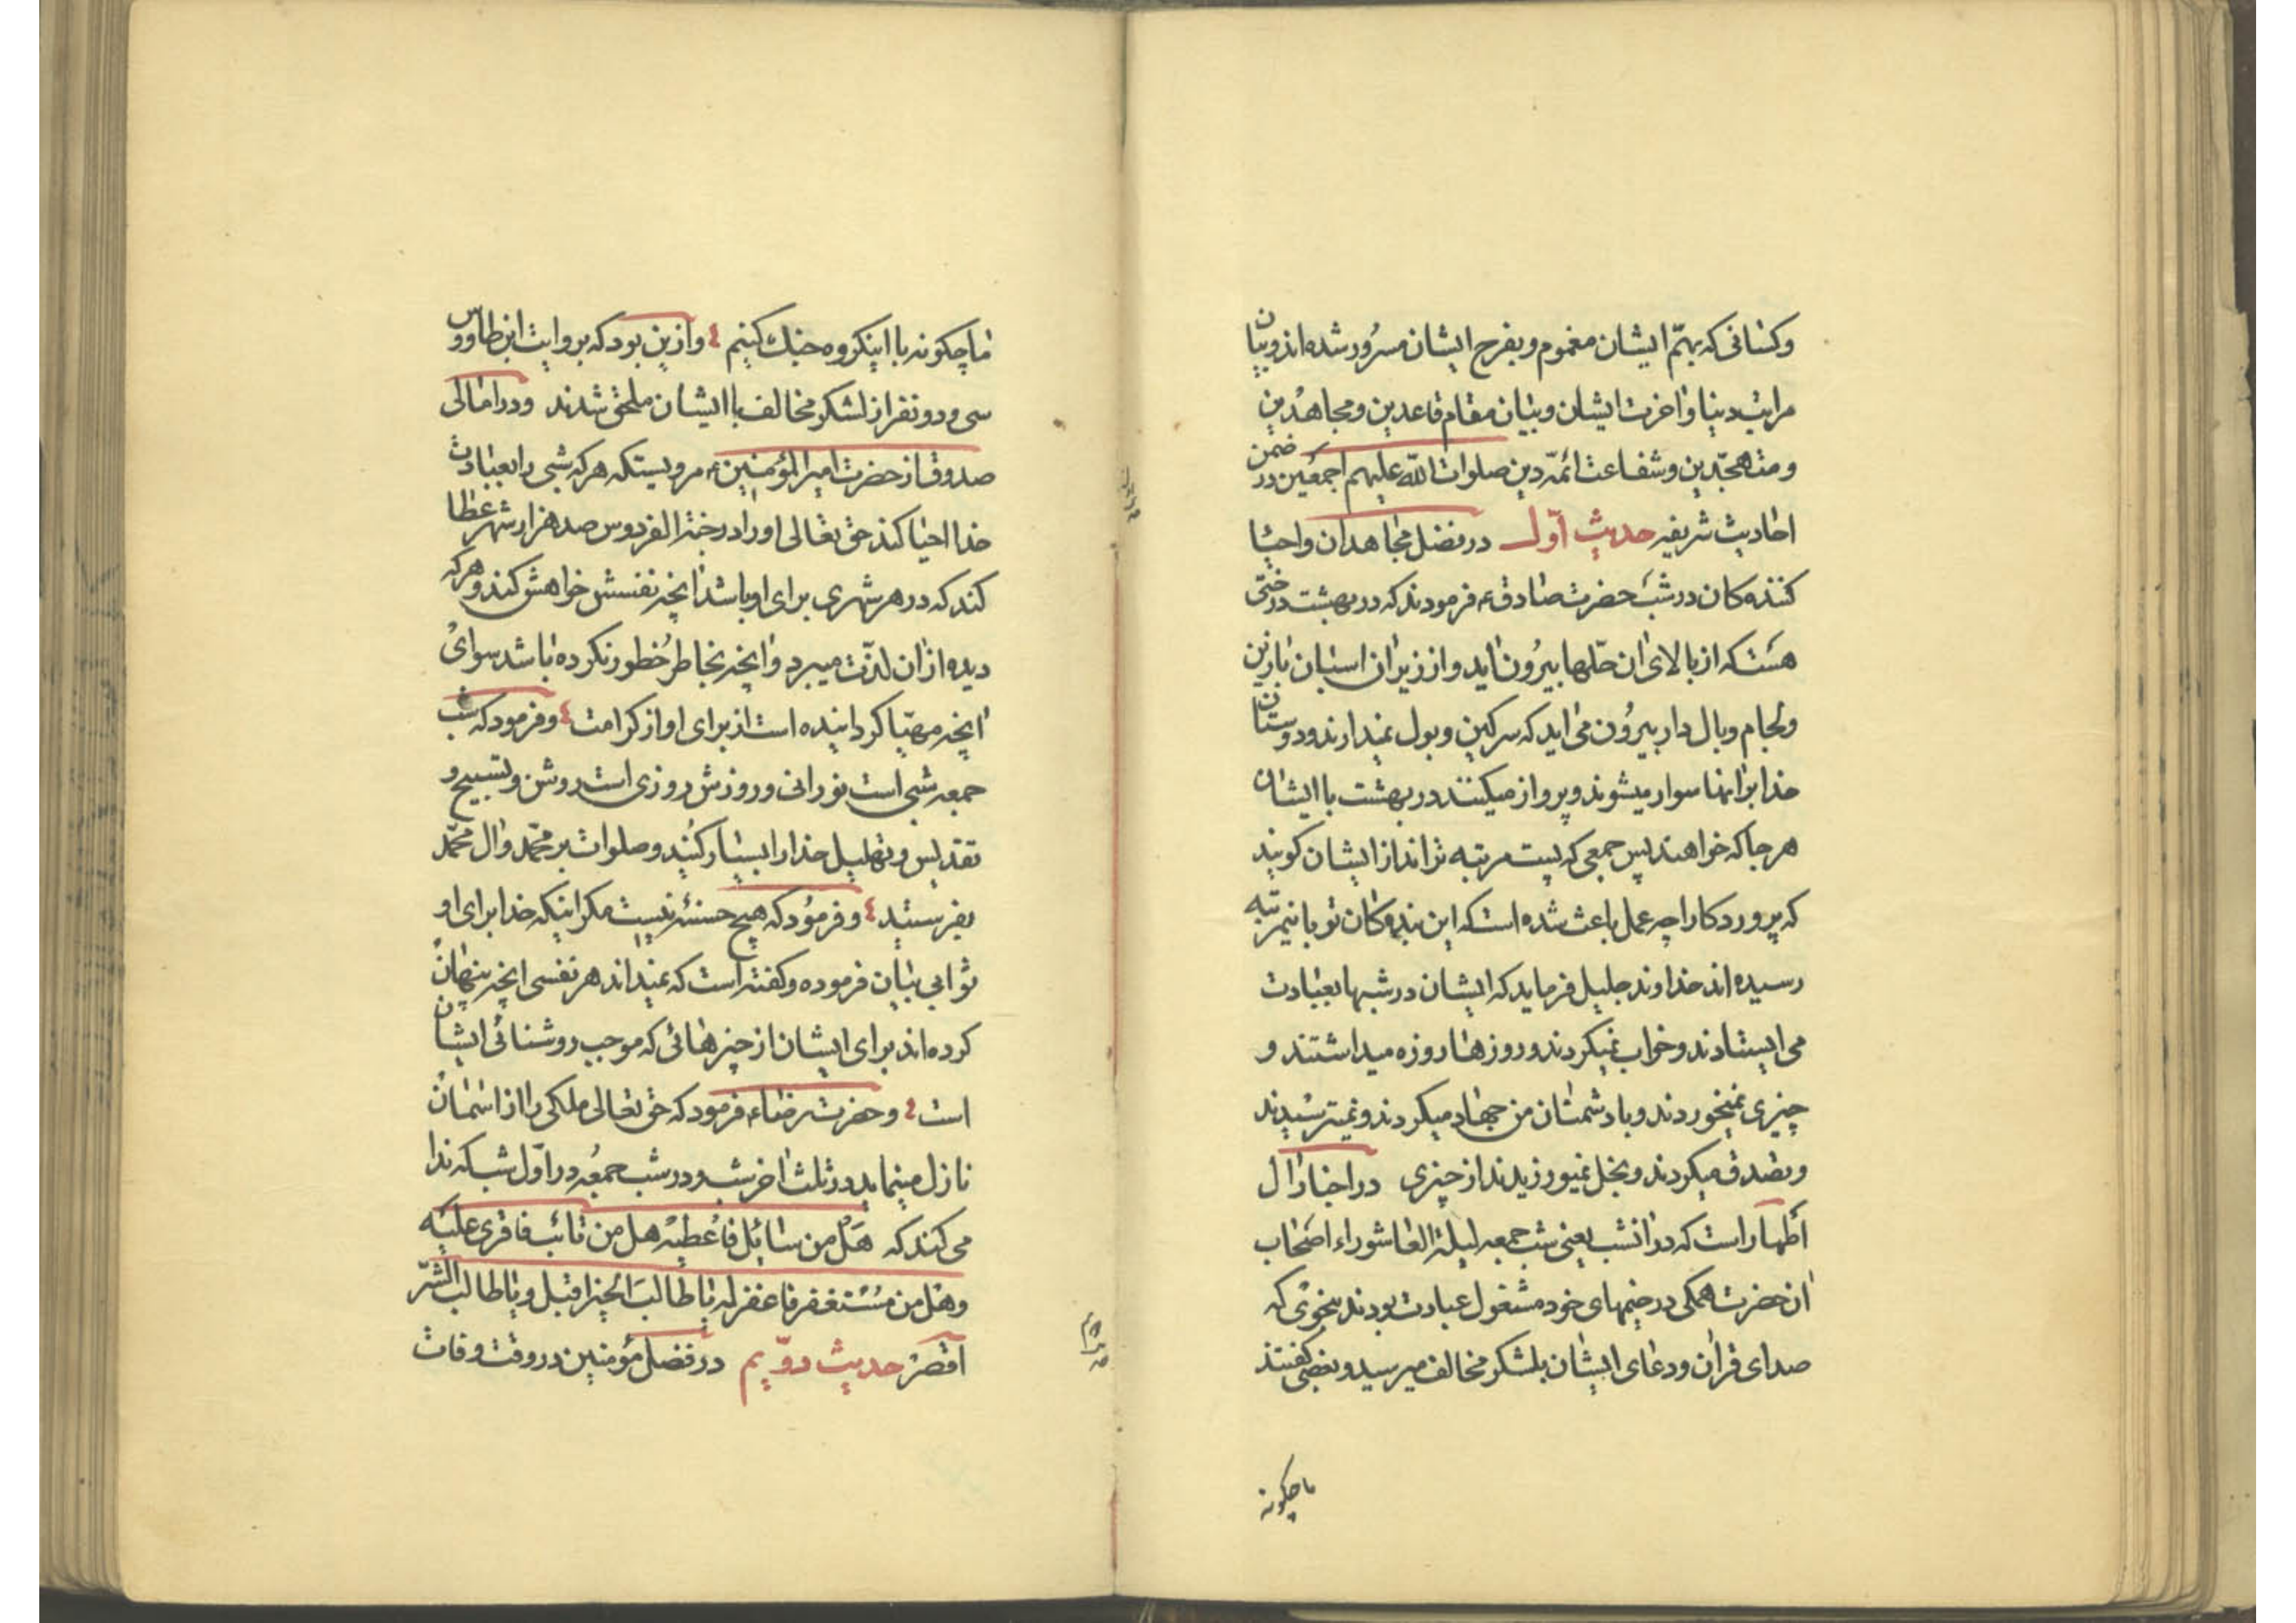 وکسانی که بهمّ ایشان مغموم و بفرح ایشان مسرُور شده‌اند و بیان
مراتب دینا و اخرت ایشان و بیان مقام قاعدین و مجاهدین
و متهجّدین و شفاعت ائمّه دین صلوات اللّه علیهم اجمعین در ضمن
احادیث شریفه حدیث اوّل در فضل مجاهدان و احیا
کننده‌کان در شب حضرت صادقء فرمودند که در بهشت درختی
هست که از بالای ان حلّها بیرُون اید و از زیر ان اسبان با زین
و لجام و بال دار بیرُون می اید که سرکین و بول نمیدارند و دوستان
خدا بر انها سوار میشوند و پرواز میکنند در بهشت با ایشان
هر جا که خواهند پس جمعی که پست مرتبه تراند از ایشان کویند
که پروردکارا چه عمل باعث شده است که این بنده‌کان تو باینمرتبه
رسیده‌اند خداوند جلیل فرماید که ایشان در شبها بعبادت
می ایستادند و خواب نمیکردند و روزها روزه میداشتند و
چیزی نمیخوردند و با دشمنان من جهاد میکردند و نمیترسیدند
و تصدق میکردند و بخل نمیورزیدند از چیزی در اخبار ال
اطهار است که در انشب یعنی شب جمعه لیلة العاشوراء اصحاب
ان حضرت همکی در خیمهای خود مشغول عبادت بودند بنحوی که
صدای قران و دعای ایشان بلشکر مخالف میرسید و بعضی کفتند
ما چکونه
ما چکونه با اینکروه جنك کنیم و ازین بود که بروایت ابن طاووس
سی و دو نفر از لشکر مخالف با ایشان ملحق شدند و در امالی
صدوق از حضرت امیر المؤمنینء مرویستکه هر که شبی را بعبادت
خدا احیا کند حق تعالی او را در جنة الفردوس صد هزار شهر عطا
کند که در هر شهری برای او باشد انچه نفسش خواهش کند و هر که
دیده از ان لذّت میبرد و انچه بخاطر خُطور نکرده باشد سوای
انچه مهیّا کردانیده است از برای او از کرامت و فرمود که شب
جمعه شبی است نورانی و روزش روزی است روشن و تسبیح و
تقدیس و تهلیل خدا را بسیار کنید و صلوات بر محمّد و ال محمّد
بفرستید و فرمود که هیچ حسنئه نیست مکر اینکه خدا برای او
ثوابی بیان فرموده و کفته است که نمیداند هر نفسی انچه پنهان
کرده‌اند برای ایشان از چیزهائی که موجب روشنائی ایشان
است و حضرت رضاء فرمود که حق تعالی ملکی را از اسمان
نازل مینماید در ثلث اخر شب و در شب جمعُه در اوّل شب که ندا
می کند که هَل من سائِل فاُعطیه هل من تائب فاقری علیه
و هَل من مُستغفر فاغفر له یا طالبَ الخیر اقبل و یا طالب الشّر
اقصر حدیث دوّیم در فضل مؤمنین در وقت وفات